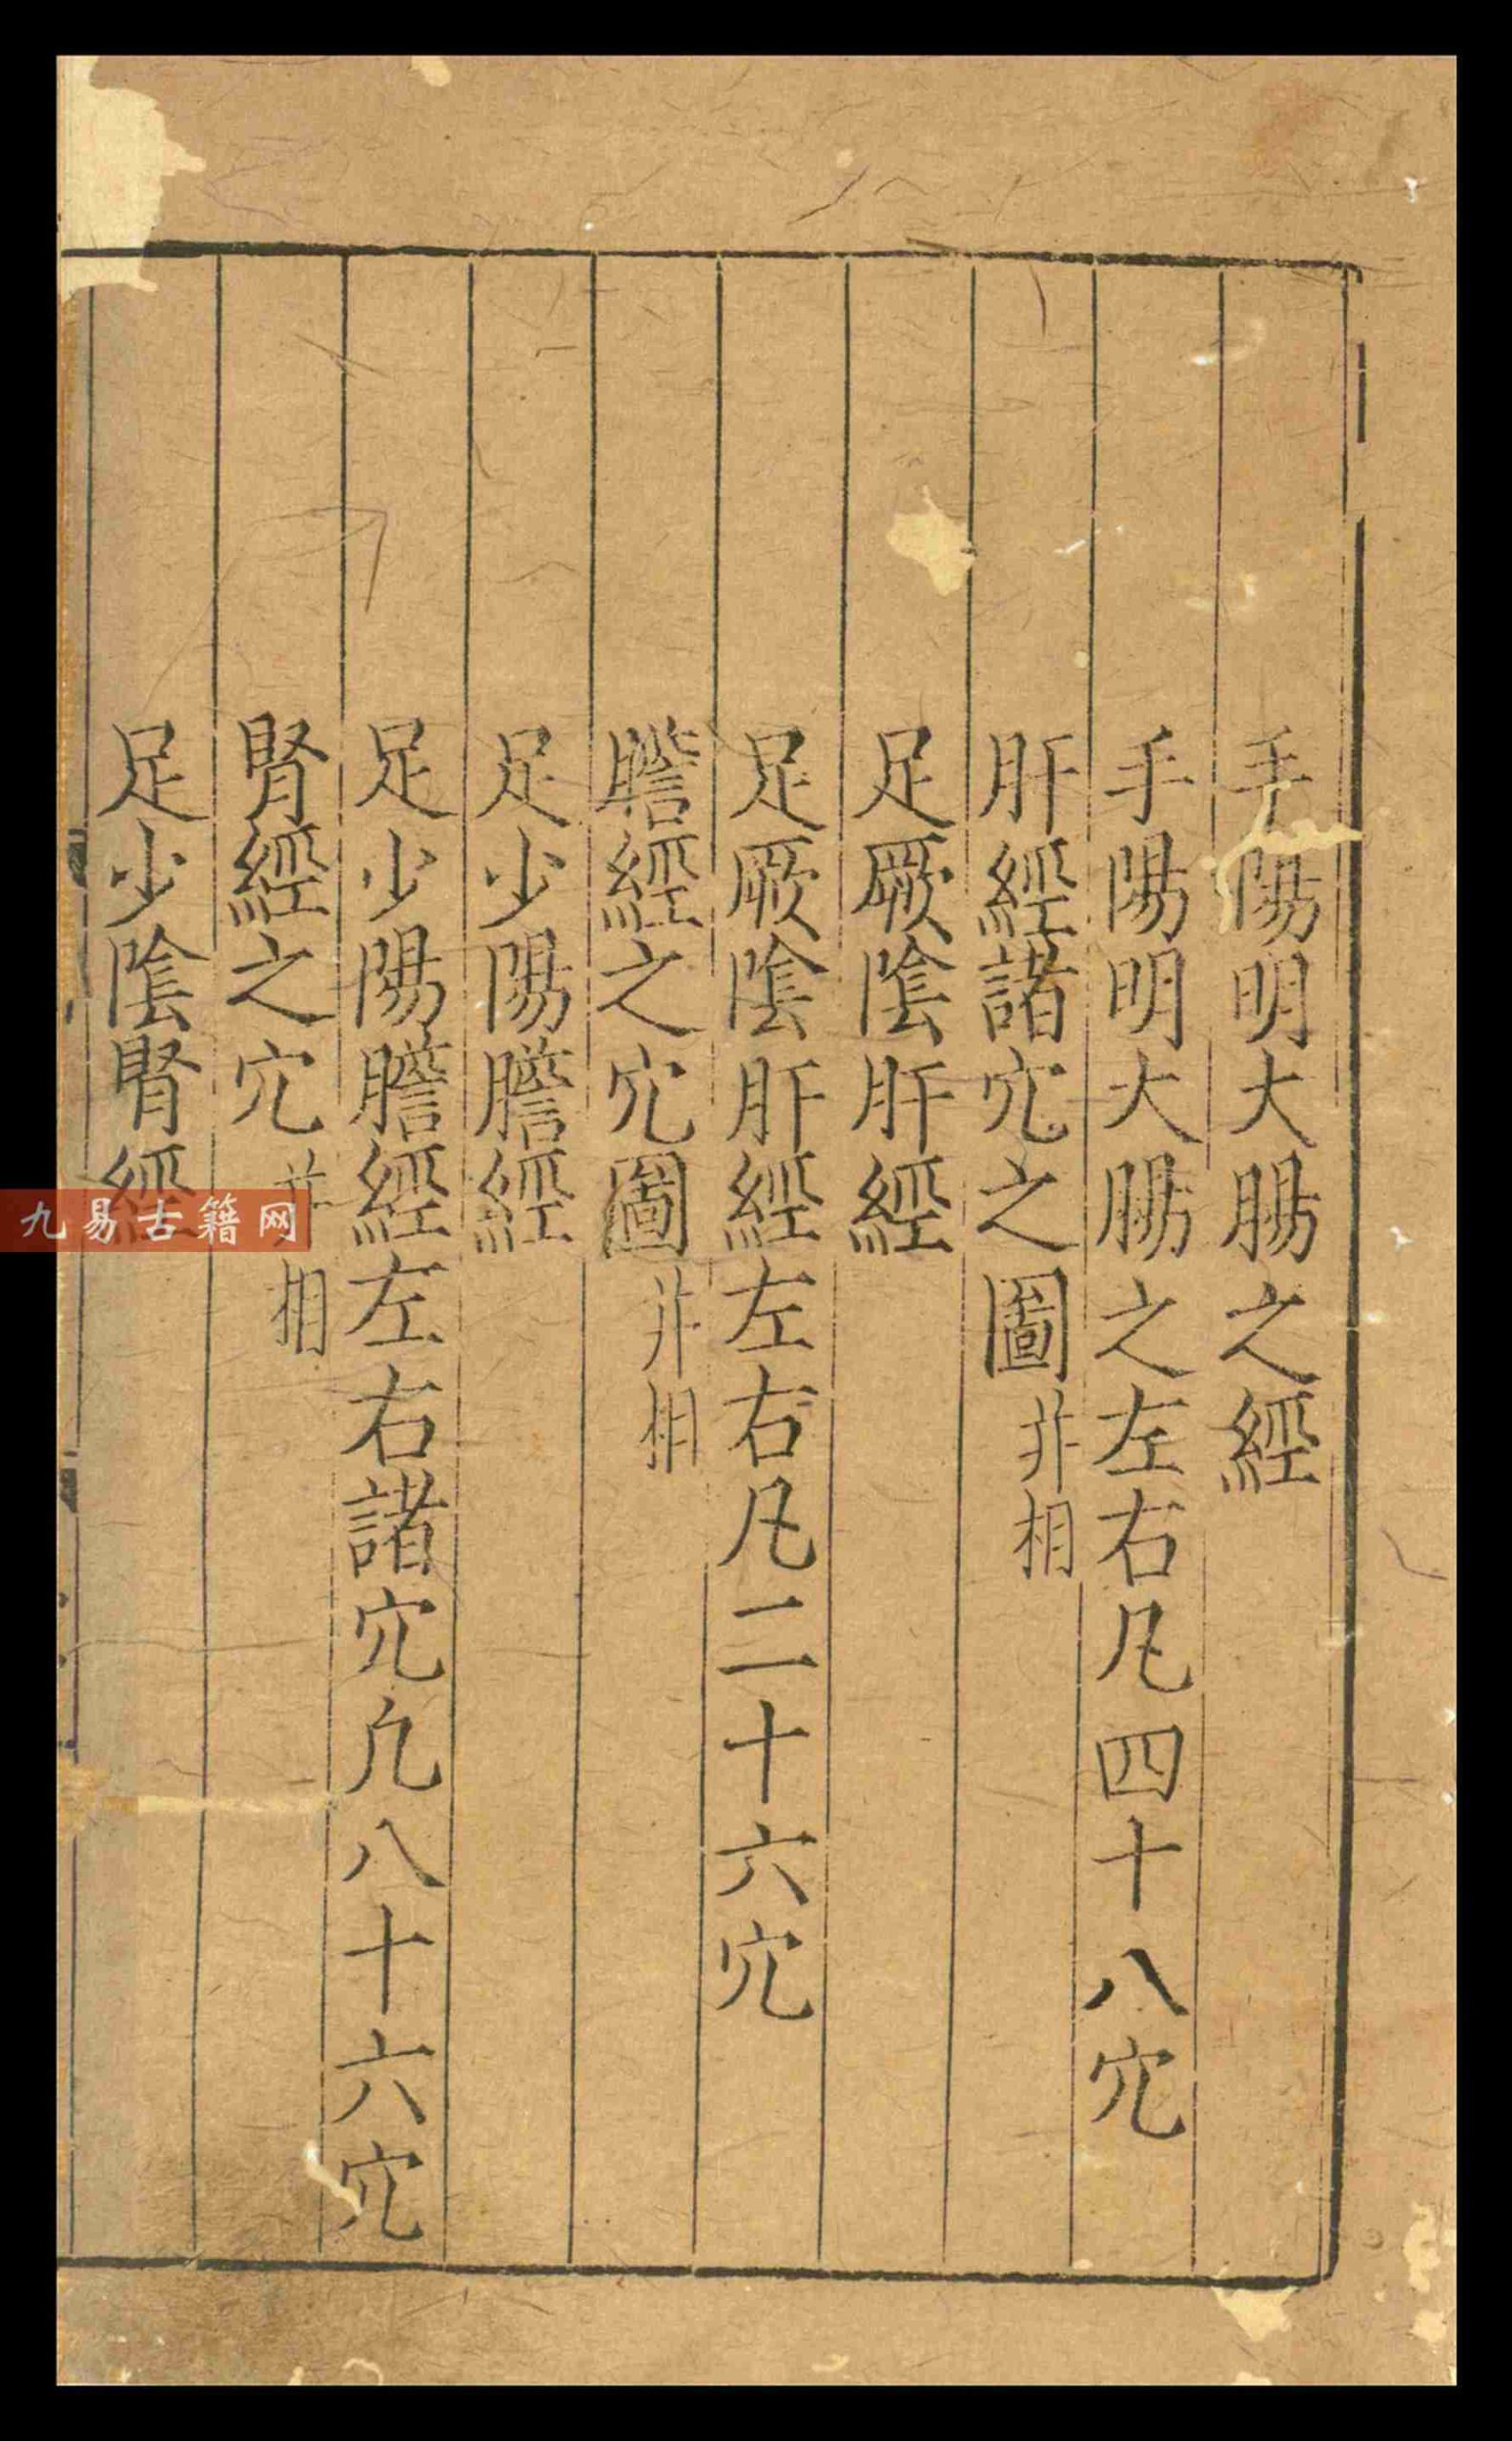 手陽明大腸之經
手陽明大腸之左右凡四十八穴
肝經諸穴之圖并相
足厥陰肝經
足厥陰肝經左右凡二十六穴
膽經之穴圖并相
足少陽膽經
足少陽膽經左右諸穴凡八十六穴
腎經之穴并相
足少陰腎經
九易古籍网